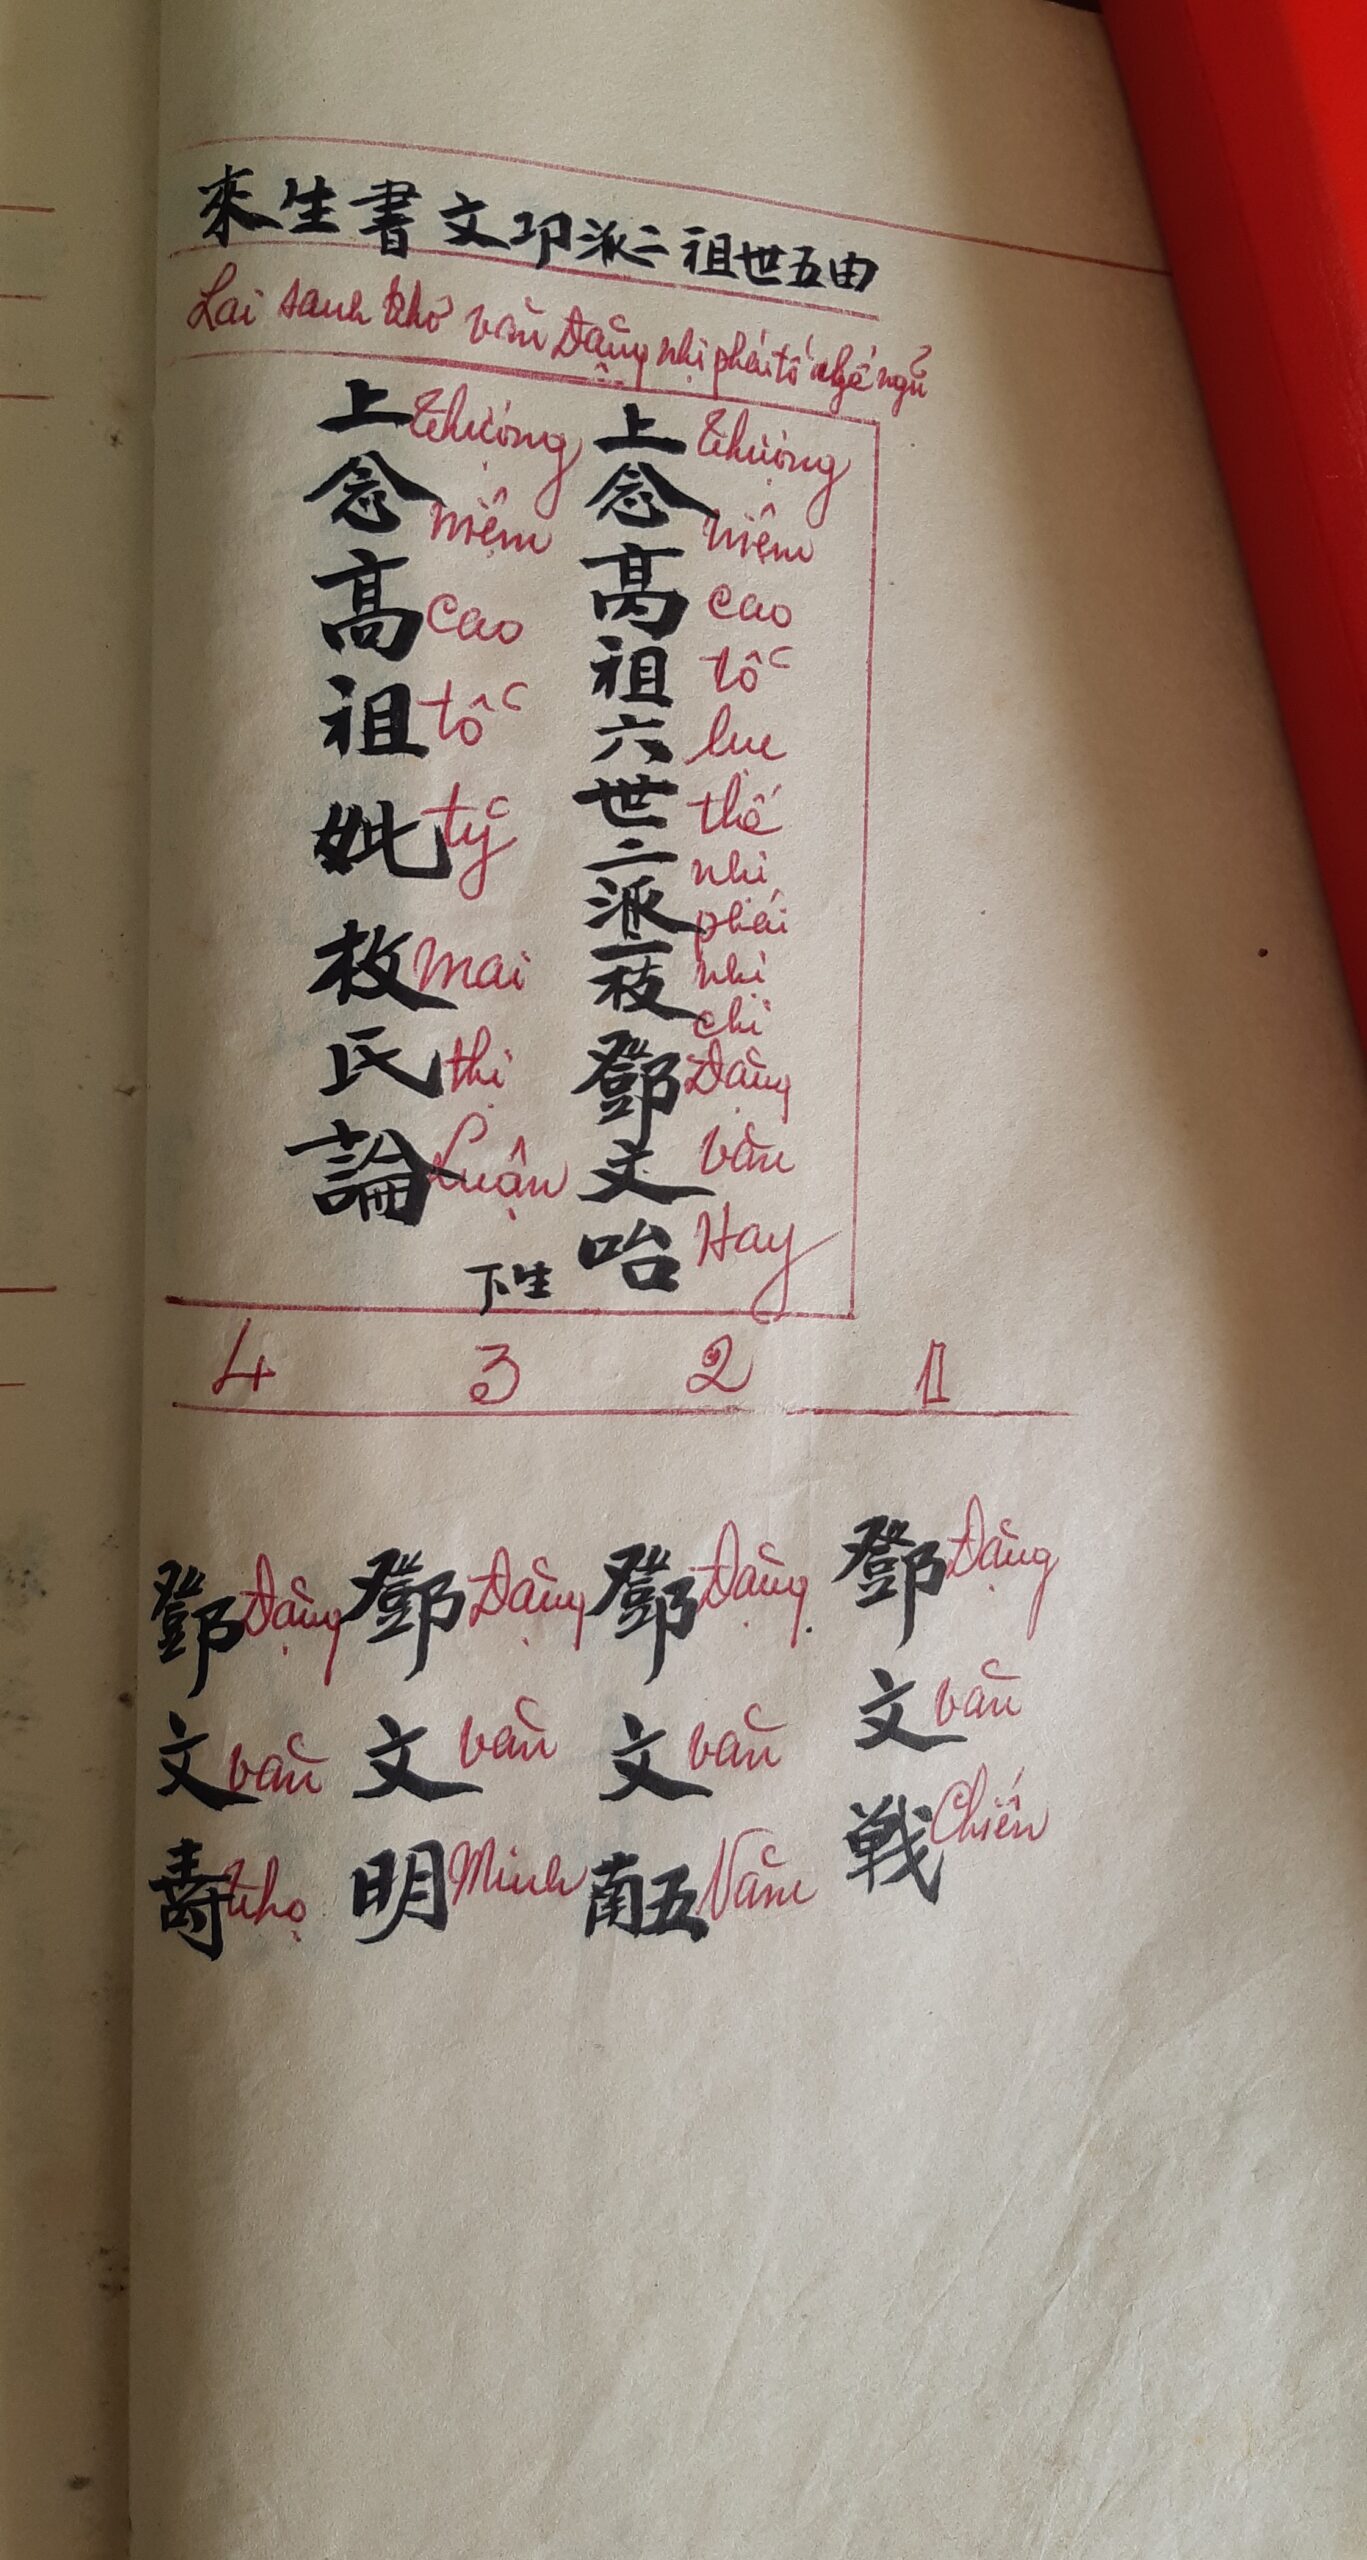 來生書文邛派二祖世五由
Lai sanh thơ văn Đặng nhị phái tổ thế ngũ
上念高祖六世二派二枝鄧文咍
Thượng niệm cao tổ lục thế nhị phái nhị chi Đặng văn Hay
上念高祖妣枚氏論
Thượng niệm cao tổ tỷ mai thị Luận
下生
1
鄧文戦
Đặng văn Chiến
2
鄧文南五
Đặng văn Năm
3
鄧文明
Đặng văn Minh
4
鄧文壽
Đặng văn thọ